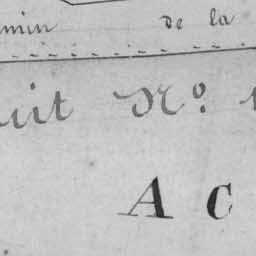 min de la
uit No. 1
A C